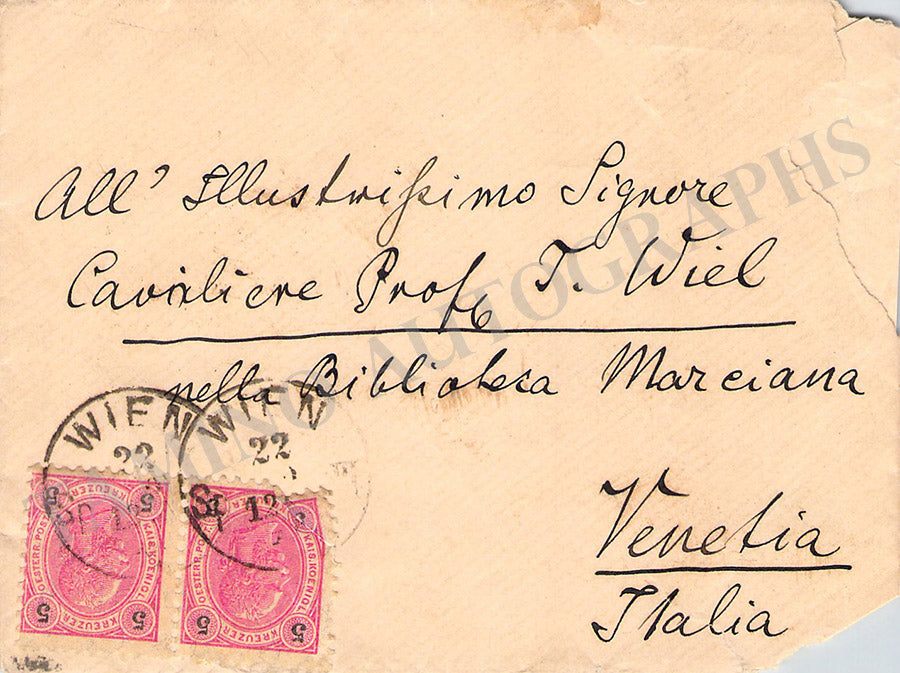 All' Illustrissimo Signore
Cavaliere Prof. T. Wiel
nella Biblioteca Marciana
Venetia
Italia
WIEN
22
WIEN
22
12
5 KREUZER 5
OESTERR. POST
KAIS. KOENIGL.
5 5
5 KREUZER 5
OESTERR. POST
KAIS. KOENIGL.
5 5
AUTOGRAPHS